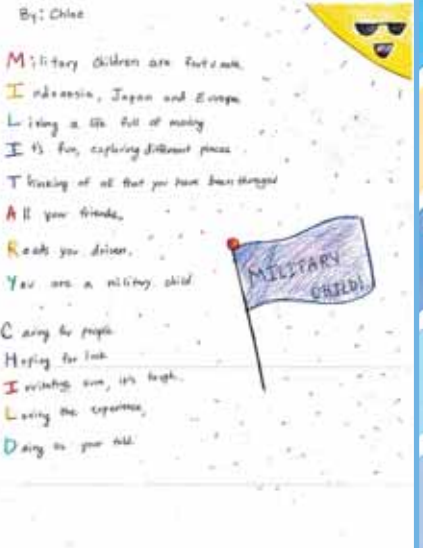 By: Chloe
Military children are fortunate
Indonesia, Japan and Europe
Living a life full of moving
It's fun, exploring different places
Thinking of all that you have been through
All your friends,
Roads you driven,
You are a military child
MILITARY
CHILD!
Caring for people
Hoping for luck
it's tough.
Loving the experience,
Doing as your told